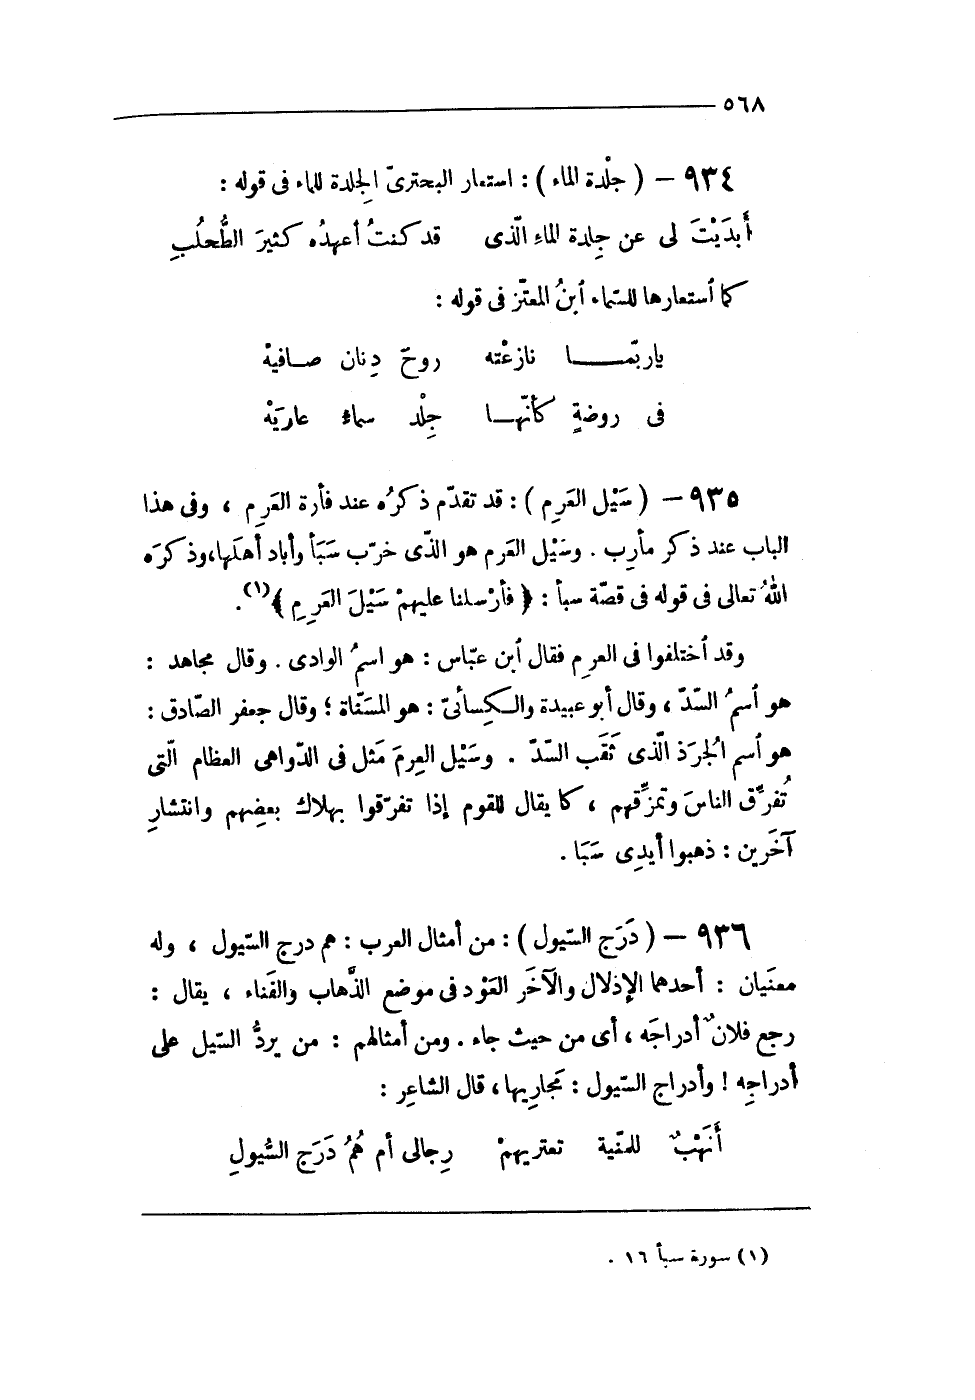 ٥٦٨
٩٣٤ – ( جلْدة الماء ) : استعار البحترىّ الجِلدة للماء فى قوله :
أَبدَيْتَ لى عن جِلدة الماءِ الّذى قد كنتُ أعهدُه كثيرَ الطُّحلُبِ
كما ٱستعارها للسّماء ٱبنُ المعتّز فى قوله :
ياربّمـــــا نازعْته روحَ دِنان صـافيهْ
فى روضةٍ كأنّهــا جِلْد سماءٍ عاريَهْ
٩٣٥ – ( سَيْل العَرِم ) : قد تقدّم ذكرُه عند فأرة العَرِم ، وفى هذا
الباب عند ذكر مأرب . وسَيْل العَرِم هو الذّى خرّب سَبَأ وأباد أهلَها، وذكرَه
اللهُ تعالى فى قوله فى قصّة سبأ : ﴿ فأرْسلنا عليهمْ سَيْلَ العَرِمِ ﴾(١).
وقد ٱختلفوا فى العرِم فقال ٱبن عبّاس : هو اسمُ الوادى . وقال مجاهد :
هو ٱسمُ السّدّ ، وقال أبو عبيدة والـكِسائىّ : هو المسَنّاة ؛ وقال جعفر الصّادق :
هو ٱسم الجُرَذ الّذى ثَقَب السّدّ . وسَيْل العرِمَ مَثل فى الدّواهى العظام الّتى
تُفرِّق الناسَ وتمزِّقهم ، كما يقال للقوم إذا تفرّقوا بهلاك بعضِهم وانتشارِ
آخَرين : ذهبوا أيدِى سَبَا .
٩٣٦ – ( دَرَج السّيول ) : من أمثال العرب : هم درج السّيول ، وله
معنَيان : أحدهما الإذلال والآخَر العَوْد فى موضع الذَّهاب والفَناء ، يقال :
رجع فلانٌ أدراجَه ، أى من حيث جاء . ومن أمثالهم : من يردُّ السّيل على
أدراجِه ! وأدراج السّيول : مَجارِيها ، قال الشاعِر :
أَنَهْبٌ للمنّية تعتريهمْ رِجالى أم هُمُ دَرَج السُّيولِ
(١) سورة سبأ ١٦ .